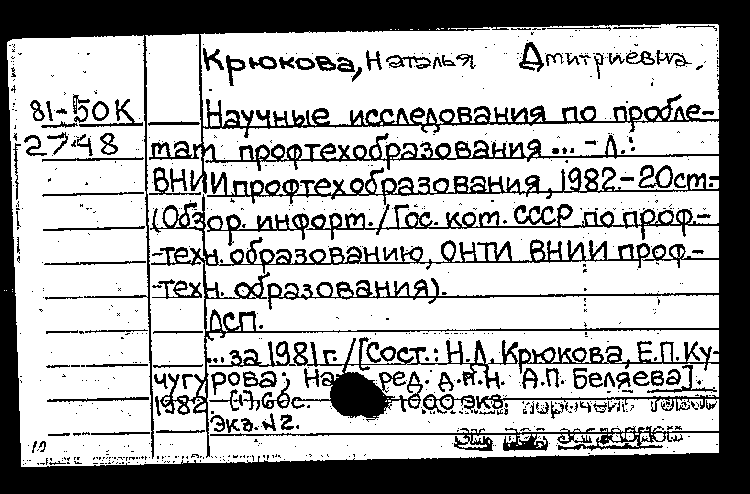 Крюкова, Наталья Дмитриевна.
81-50К
2748
Научные исследования по пробле-
мам профтехобразования ... - Л.:
ВНИИ профтехобразования, 1982.- 20см.-
(Обзор. информ./Гос. ком. СССР по проф.-
-техн. образованию, ОНТИ ВНИИ проф.-
-техн. образования).
ДСП.
...за 1981 г. / [Сост.: Н.Д. Крюкова, Е.П. Ку-
чугурова; ред. д.п.н. А.П. Беляева].
1982 60с. 1000 экз.
Экз. №2.